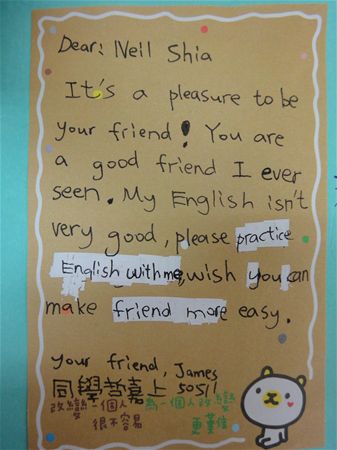 Dear: Neil Shia
It's a pleasure to be
your friend! You are
a good friend I ever
seen. My English isn't
very good, please practice
English with me, wish you can
make friend more easy.
your friend, James
同學哲嘉上 50511
改變一個人 為一個人改變
很不容易 更難